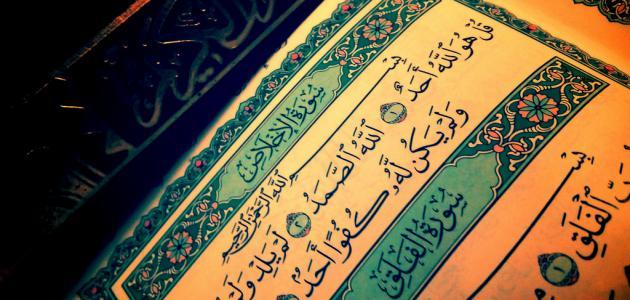 الكريم
سُورَةُ الإِخْلَاصِ
بِسْمِ ٱللَّهِ ٱلرَّحْمَٰنِ ٱلرَّحِيمِ
قُلْ هُوَ ٱللَّهُ أَحَدٌ ١ ٱللَّهُ ٱلصَّمَدُ ٢ لَمْ يَلِدْ وَلَ
وَلَمْ يَكُن لَّهُۥ كُفُوًا أَحَدٌۢ
سُورَةُ الْفَلَقِ
بِسْ
ٱلْفَلَقِ ١